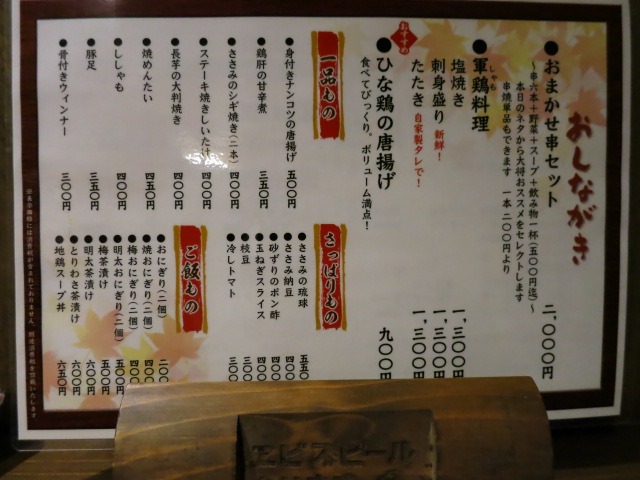 おしながき
●おまかせ串セット 二、〇〇〇円
~串六本+野菜+スープ+飲み物一杯(五〇〇円迄)~
本日のネタから大将おススメをセレクトします
串焼単品もできます 一本二〇〇円より
●軍鶏料理
しゃも
塩焼き 一、三〇〇円
刺身盛り 新鮮! 一、三〇〇円
たたき 自家製タレで! 一、三〇〇円
おすすめ
●ひな鶏の唐揚げ 九〇〇円
食べてびっくり。ボリューム満点!
一品もの
●身付きナンコツの唐揚げ 五〇〇円
●鶏肝の甘辛煮 三五〇円
●ささみのシギ焼き(二本) 四〇〇円
●ステーキ焼きしいたけ 四〇〇円
●長芋の大判焼き 四〇〇円
●焼めんたい 四五〇円
●ししゃも 四〇〇円
●豚足 三五〇円
●骨付きウィンナー 三〇〇円
さっぱりもの
●ささみの琉球 五五〇
●ささみ納豆 四〇〇
●砂ずりのポン酢 四〇〇
●玉ねぎスライス 三〇〇
●枝豆 三〇〇
●冷しトマト 三〇〇
ご飯もの
●おにぎり(二個) 二〇〇
●焼おにぎり(二個)
●梅おにぎり(二個) 四〇〇
●明太おにぎり(二個) 五〇〇
●梅茶漬け 五〇〇円
●明太茶漬け 六〇〇円
●とりわさ茶漬け 六〇〇円
●地鶏スープ丼 六五〇円
※表示価格には消費税が含まれておりません。別途消費税を頂戴いたします
ヱビスビール